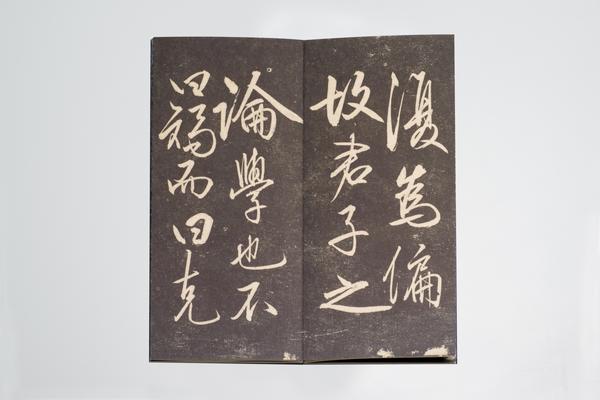 復為偏
故君子之
論學也不
曰矯而曰克